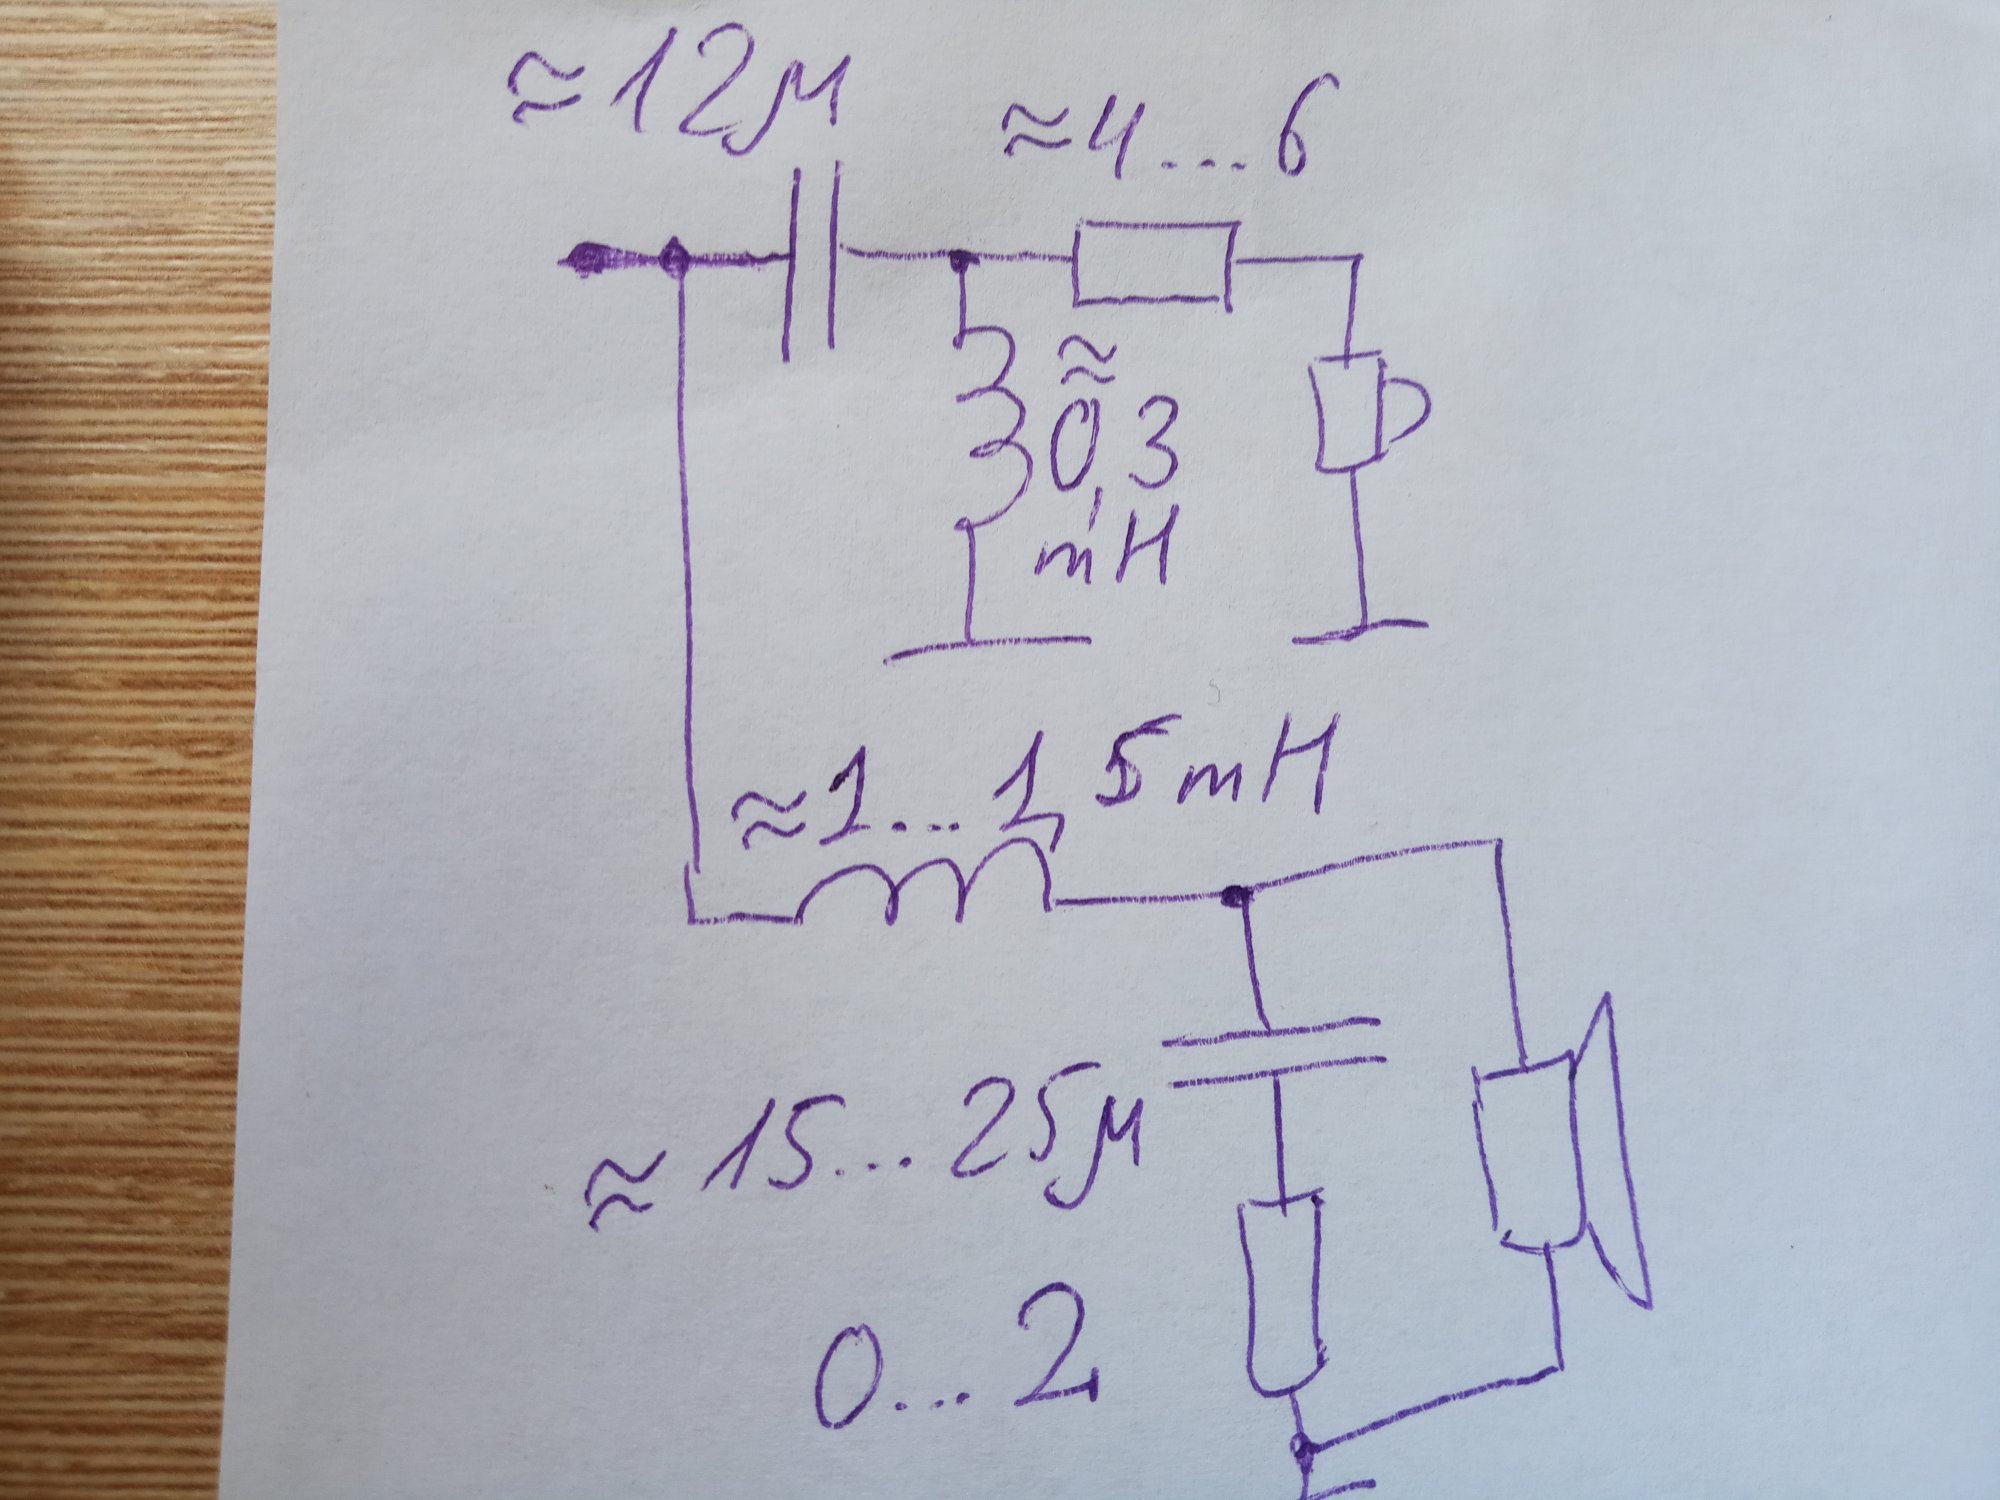 ≈12μ
≈4...6
≈
0,3
mH
≈1...1,5mH
≈15...25μ
0...2